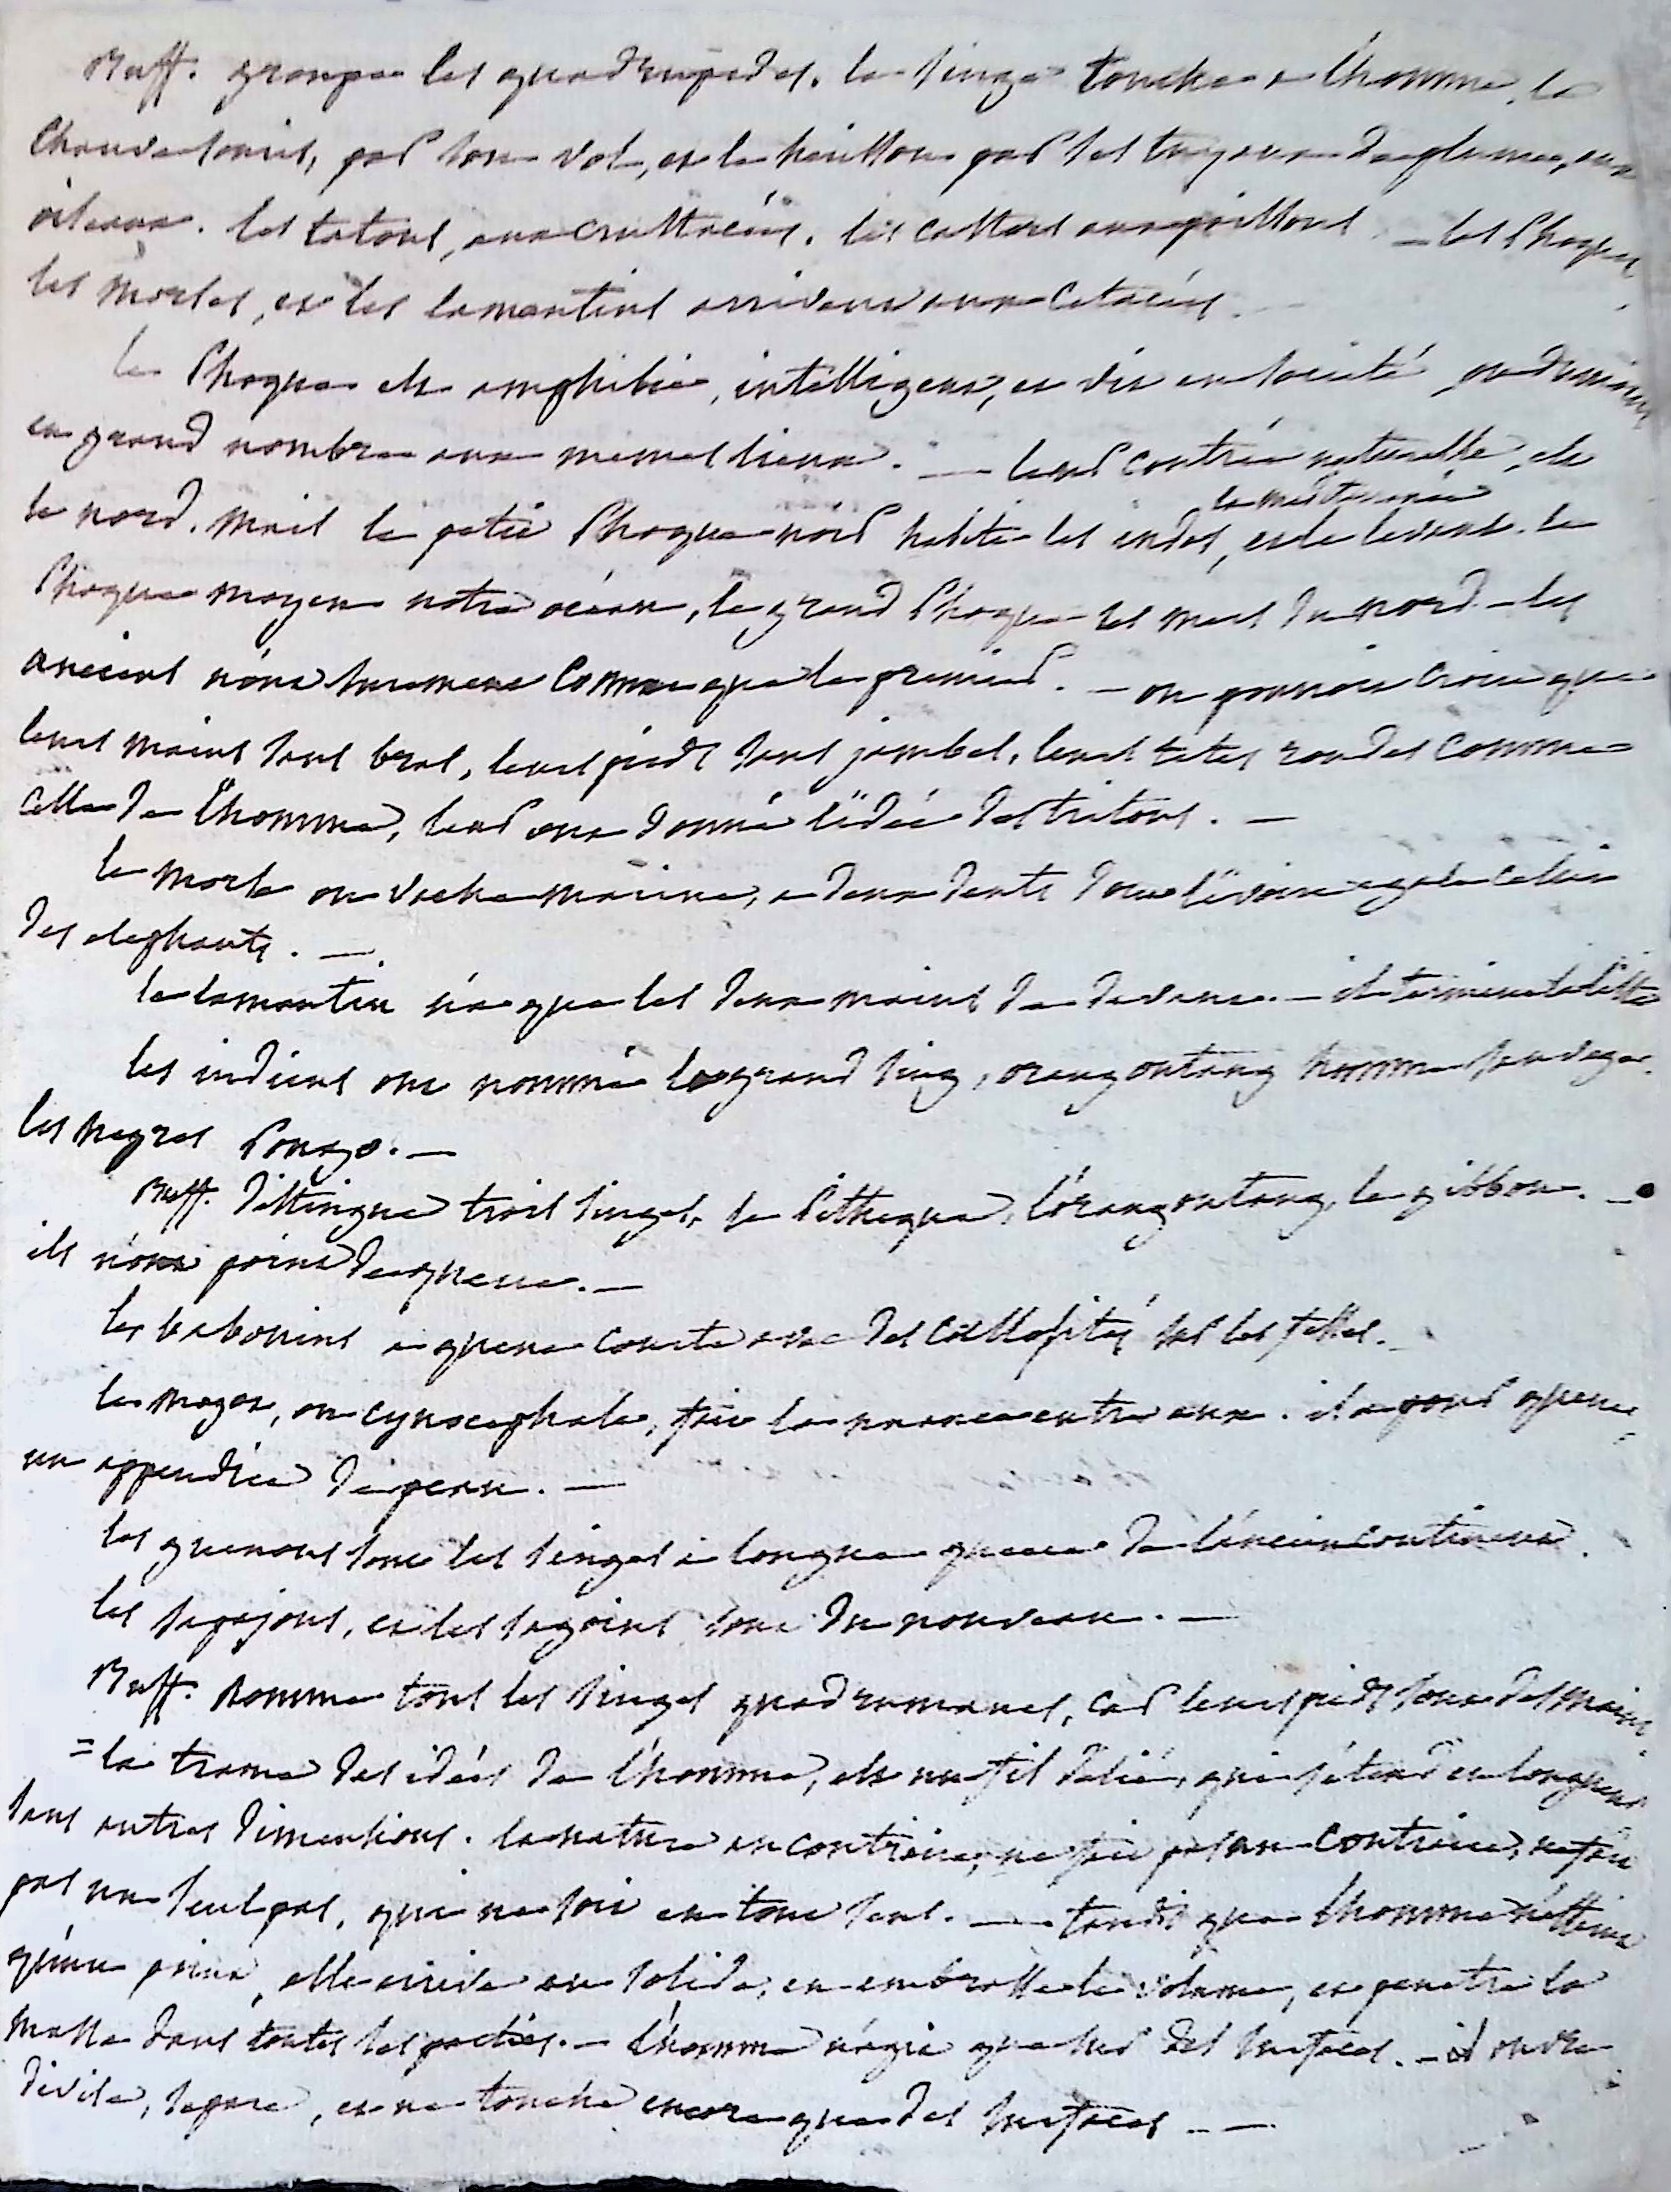 Buff. groupe les quadrupedes. le singe touche a l'homme. la
chauve souris, par son vol, et le hérisson par ses tuyaux de plumes, aux
oiseaux. les tatous, aux crustacées. les castors aux poissons — les Phoques
les morses, et les lamantins arrivent aux cetacées.
le Phoque est amphibie, intelligent, et vit en société
en grand nombre aux memes lieux. — leur contrée naturelle, est
la mediterranée
le nord. mais le petit Phoque noir habite les indes, et le levant. le
Phoque moyen notre océan, le grand Phoque les mers du nord — les
anciens n'ont surement connu que le premier. — on pourroit croire que
leurs mains sans bras, leurs pieds sans jambes, leurs tetes rondes comme
celle de l'homme, leur ont donné l'idée des tritons. —
le morse ou vache marine, a deux dents dont l'ivoire egale celui
des elephants. —.
le lamantin n'a que les deux mains de devant. — il termine la liste
les indiens ont nommé le grand sing, orang outang homme sauvage.
les negres Pongo. —
Buff. distingue trois singes, le Pitheque, l'orang outang, le gibbon. —
ils n'ont point de queue. —
les babouins a queue courte avec des callosités sur les fesses. —
le magot, ou cynocephale, fait la nuance entre eux. il a pour queue,
un appendice de peau. —
les guenons sont les singes a longue queue de l'ancien continent.
les sapajous, et les sagoins sont du nouveau. —
Buff. nomme tous les singes quadrumanes, car leurs pieds sont des mains
= la trame des idées de l'homme, est un fil delié, qui s'étend en longueur
sans autres dimensions. la nature au contraire, ne fait pas au contraire, ne fait
pas un seul pas, qui ne soit en tout sens. — tandis que l'homme n'atteint
qu'un point, elle arrive au solide, en embrasse le volume, et penetre la
masse dans toutes ses parties. — l'homme n'agit que sur des surfaces. — il ouvre
divise, separe, et ne touche encore que des surfaces — —